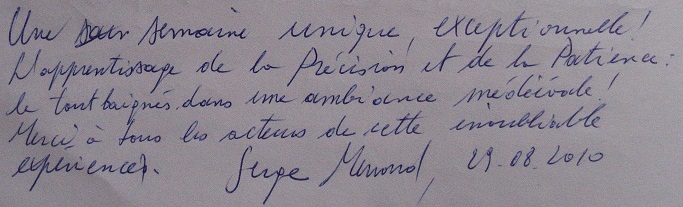 Une semaine unique, exceptionnelle!
L'apprentissage de la Précision et de la Patience:
le tout baignés dans une ambiance médiévale!
Merci à tous les acteurs de cette inoubliable
expérience. Serge 29.08.2010